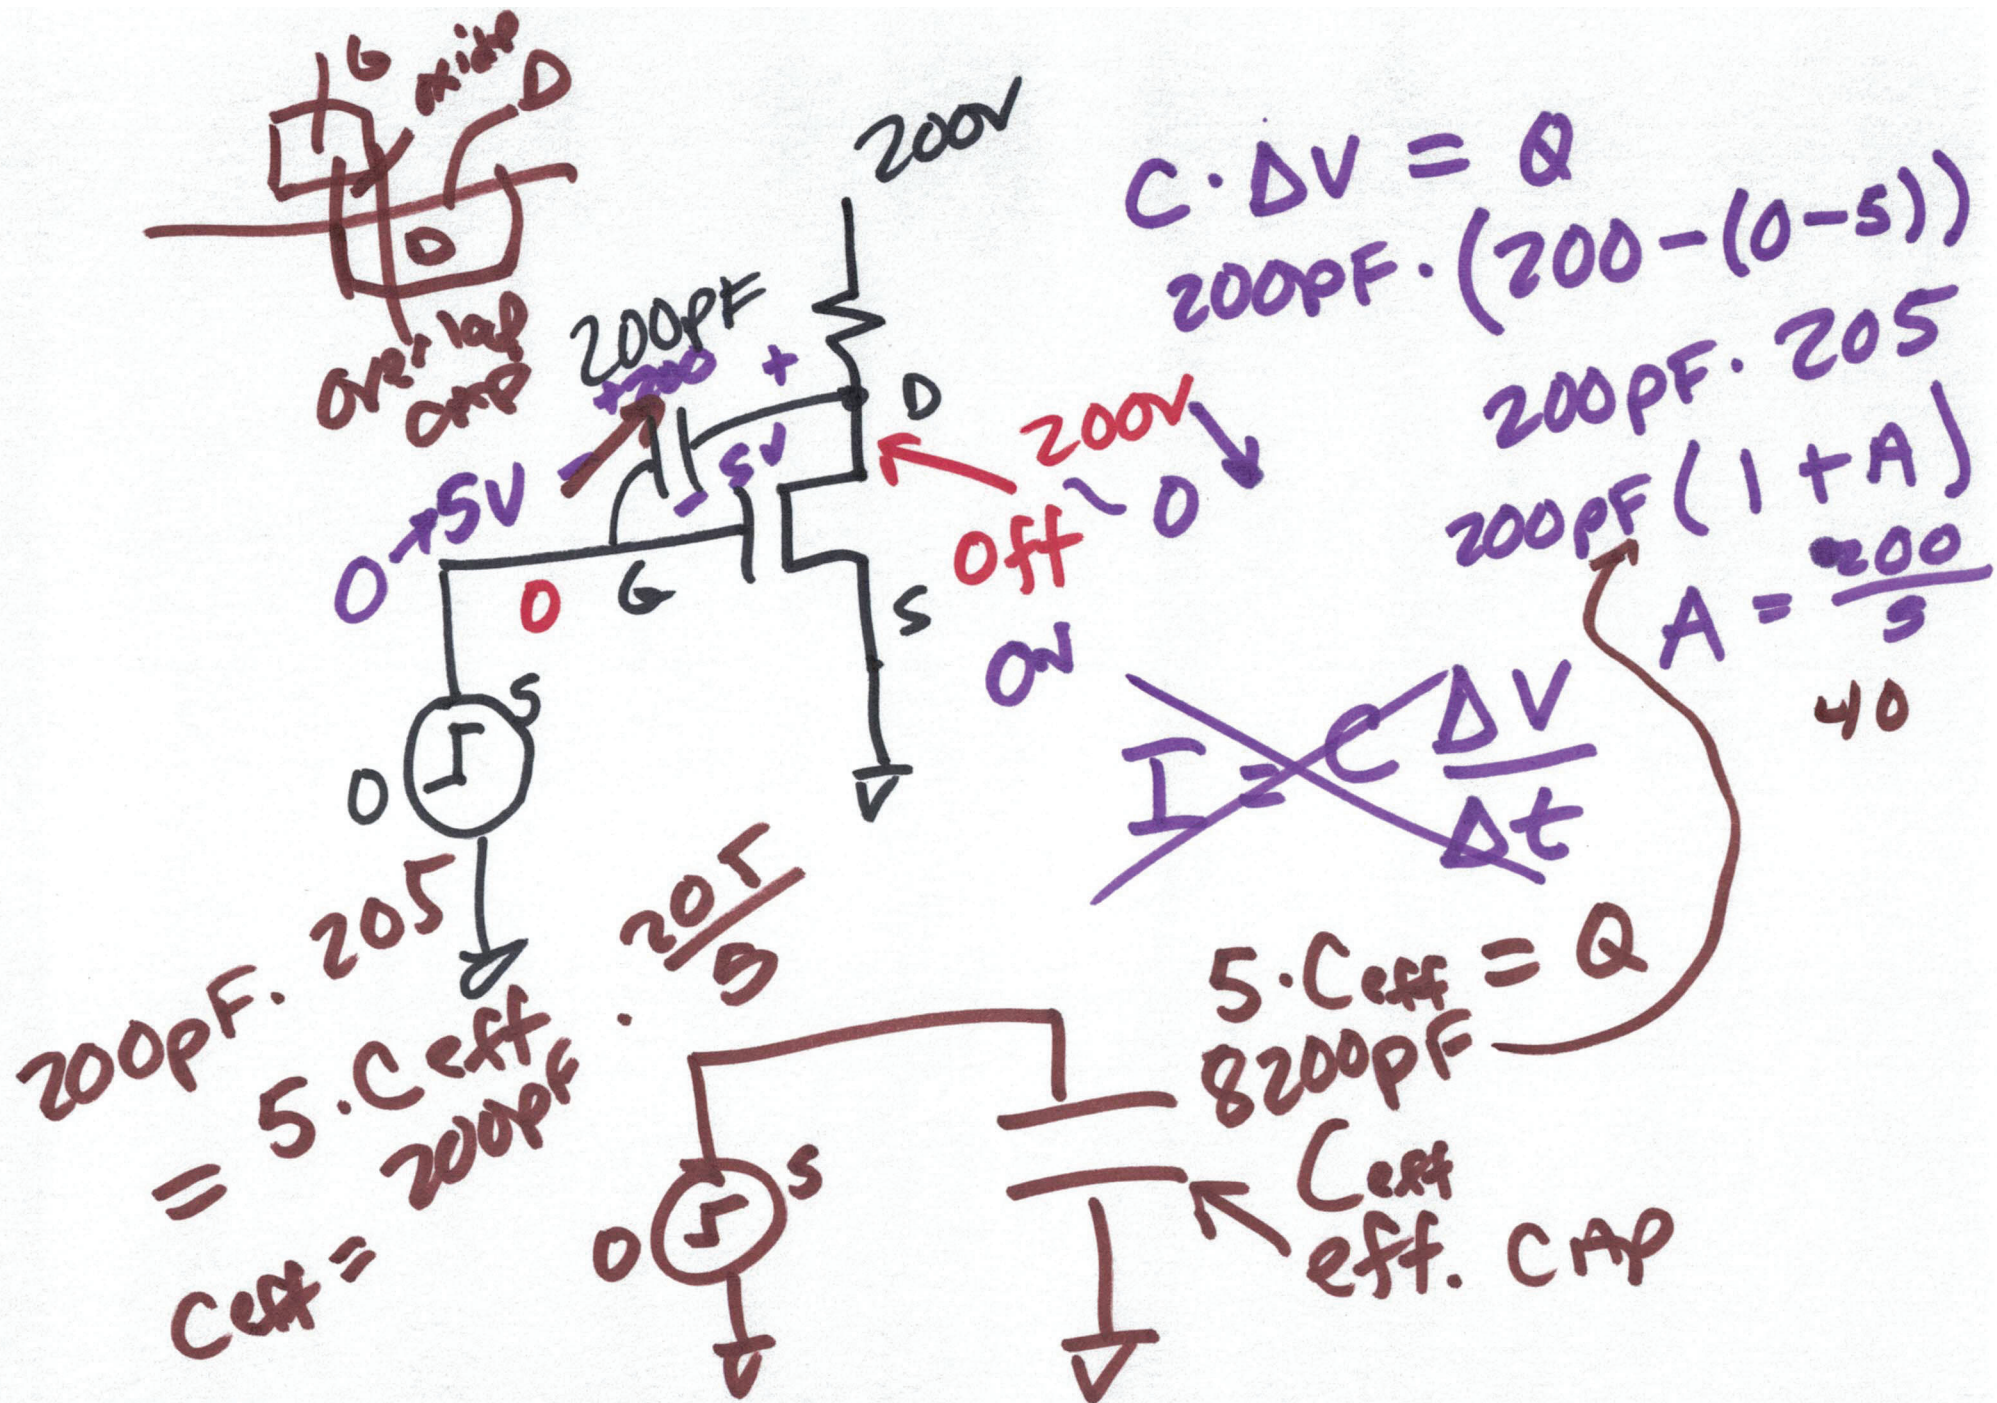 G
oxide
D
D
overlap
cap
200V
200pF
+200
+
-
5V
-
0→5V
0
G
D
S
200V
~0
Off
ON
5
0
C·ΔV = Q
200pF·(200-(0-5))
200pF·205
200pF(1+A)
A = 200/5
40
I = C ΔV/Δt
200pF·205
= 5·Ceff
Ceff = 200pF · 205/5
5·Ceff = Q
8200pF
Ceff
eff. CAP
5
0